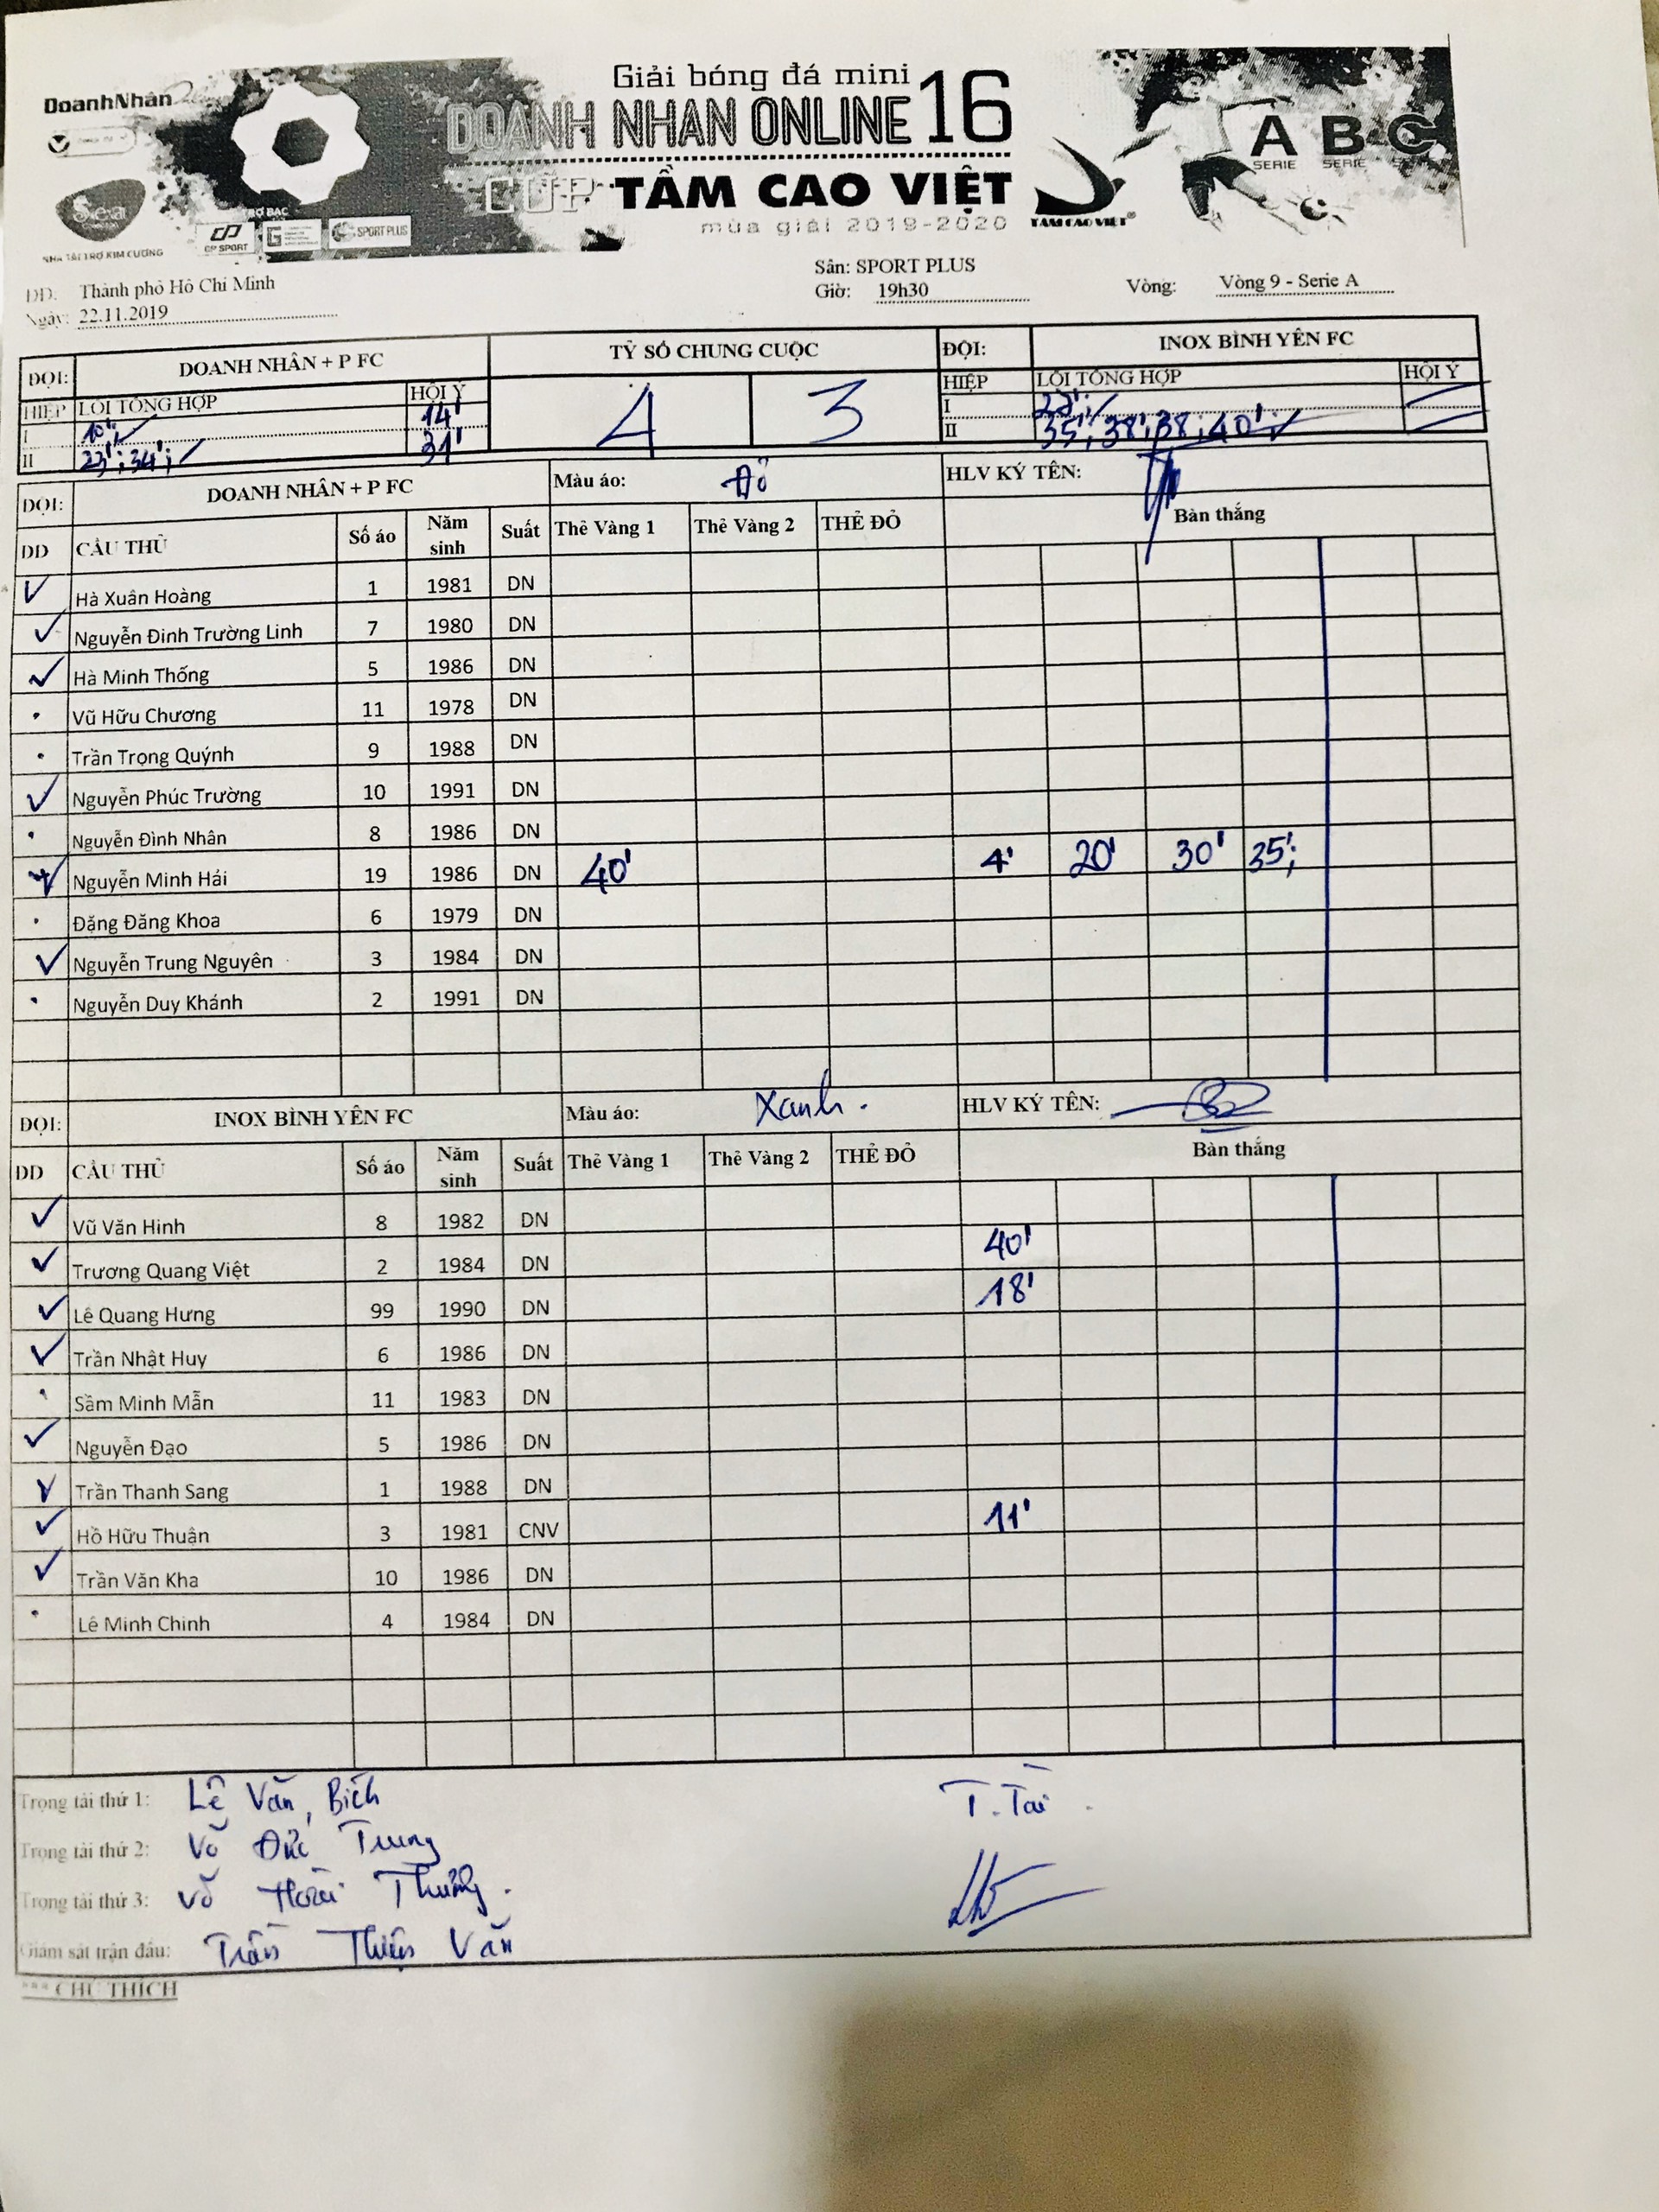 DoanhNhân
Giải bóng đá mini
DOANH NHAN ONLINE 16
CÚP TẦM CAO VIỆT
mùa giải 2019-2020
TAM CAO VIET®
A B C
SERIE SERIE SERIE
Sea
NHÀ TÀI TRỢ KIM CƯƠNG
CP SPORT
SPORT PLUS
ĐĐ: Thành phố Hồ Chí Minh
Ngày: 22.11.2019
Sân: SPORT PLUS
Giờ: 19h30
Vòng: Vòng 9 - Serie A
ĐỘI: DOANH NHÂN + P FC TỶ SỐ CHUNG CUỘC ĐỘI: INOX BÌNH YÊN FC
HIỆP LỖI TỔNG HỢP HỘI Ý 4 3 HIỆP LỖI TỔNG HỢP HỘI Ý
I 10'; 14' I 22';
II 23'; 34'; 31' II 35'; 38'; 38; 40';
ĐỘI: DOANH NHÂN + P FC Màu áo: Đỏ HLV KÝ TÊN:
DD CẦU THỦ Số áo Năm sinh Suất Thẻ Vàng 1 Thẻ Vàng 2 THẺ ĐỎ Bàn thắng
Hà Xuân Hoàng 1 1981 DN
Nguyễn Đinh Trường Linh 7 1980 DN
Hà Minh Thống 5 1986 DN
Vũ Hữu Chương 11 1978 DN
Trần Trọng Quýnh 9 1988 DN
Nguyễn Phúc Trường 10 1991 DN
Nguyễn Đình Nhân 8 1986 DN
Nguyễn Minh Hải 19 1986 DN 40' 4' 20' 30' 35';
Đặng Đăng Khoa 6 1979 DN
Nguyễn Trung Nguyên 3 1984 DN
Nguyễn Duy Khánh 2 1991 DN
ĐỘI: INOX BÌNH YÊN FC Màu áo: Xanh. HLV KÝ TÊN:
DD CẦU THỦ Số áo Năm sinh Suất Thẻ Vàng 1 Thẻ Vàng 2 THẺ ĐỎ Bàn thắng
Vũ Văn Hinh 8 1982 DN
Trương Quang Việt 2 1984 DN 40'
Lê Quang Hưng 99 1990 DN 18'
Trần Nhật Huy 6 1986 DN
Sầm Minh Mẫn 11 1983 DN
Nguyễn Đạo 5 1986 DN
Trần Thanh Sang 1 1988 DN
Hồ Hữu Thuận 3 1981 CNV 11'
Trần Văn Kha 10 1986 DN
Lê Minh Chinh 4 1984 DN
Trọng tài thứ 1: Lê Văn Bích T. Tài.
Trọng tài thứ 2: Võ Đức Trung
Trọng tài thứ 3: Võ Hoài Thưởng.
Giám sát trận đấu: Trần Thiện Văn
*** CHÚ THÍCH